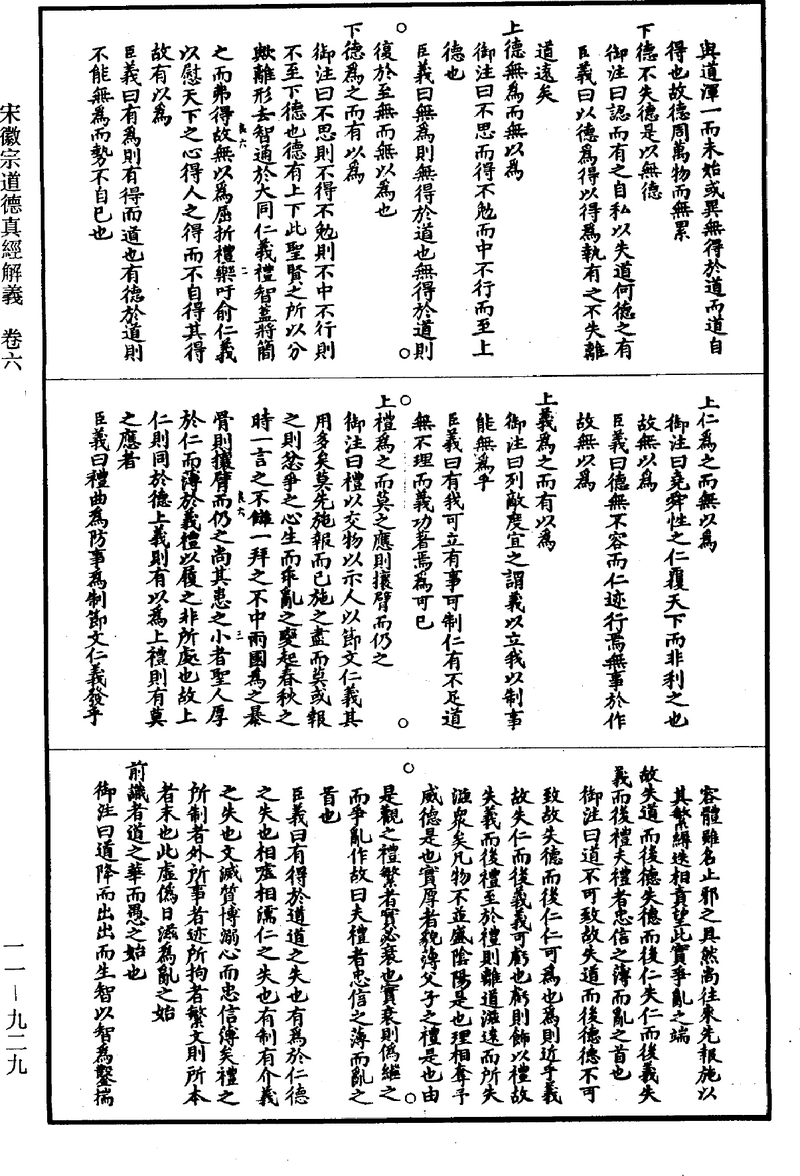 宋徽宗道德真經解義　卷六
一一—九二九
與道渾一而未始或異無得於道而道自
得也故德周萬物而無累
下德不失德是以無德
御注曰認而有之自私以失道何德之有
臣義曰以德為得以得為執有之不失離
道遠矣
上德無為而無以為
御注曰不思而得不勉而中不行而至上
德也
臣義曰無為則無得於道也無得於道則
復於至無而無以為也
下德為之而有以為
御注曰不思則不得不勉則不中不行則
不至下德也德有上下此聖賢之所以分
歟離形去智通於大同仁義禮智蓋將簡
之而弗得故無以為屈折禮樂吁俞仁義
以慰天下之心得人之得而不自得其得
故有以為
臣義曰有為則有得而道也有德於道則
不能無為而勢不自已也
上仁為之而無以為
御注曰堯舜性之仁覆天下而非利之也
故無以為
臣義曰德無不容而仁迹行焉無事於作
故無以為
上義為之而有以為
御注曰列敵度宜之謂義以立我以制事
能無為乎
臣義曰有我可立有事可制仁有不足道
無不理而義功著焉為可已
上禮為之而莫之應則攘臂而仍之
御注曰禮以交物以示人以節文仁義其
用多矣莫先施報而已施之盡而莫或報
之則忿爭之心生而乖亂之變起春秋之
時一言之不讎一拜之不中兩國為之暴
骨則攘臂而仍之尚其患之小者聖人厚
於仁而薄於義禮以履之非所處也故上
仁則同於德上義則有以為上禮則有莫
之應者
臣義曰禮曲為防事為制節文仁義發乎
容體雖名止邪之具然尚往來先報施以
其繁縟迭相責望此實爭亂之端
故失道而後德失德而後仁失仁而後義失
義而後禮夫禮者忠信之薄而亂之首也
御注曰道不可致故失道而後德德不可
致故失德而後仁仁可為也為則近乎義
故失仁而後義義可虧也虧則飾以禮故
失義而後禮至於禮則離道滋遠而所失
滋眾矣凡物不並盛陰陽是也理相奪予
威德是也實厚者貌薄父子之禮是也由
是觀之禮繁者實必衰也實衰則偽繼之
而爭亂作故曰夫禮者忠信之薄而亂之
首也
臣義曰有得於道道之失也有為於仁德
之失也相噓相濡仁之失也有制有介義
之失也文滅質博溺心而忠信薄矣禮之
所制者外所事者迹所拘者繁文則所本
者末也此虛偽日滋為亂之始
前識者道之華而愚之始也
御注曰道降而出出而生智以智為鑿揣